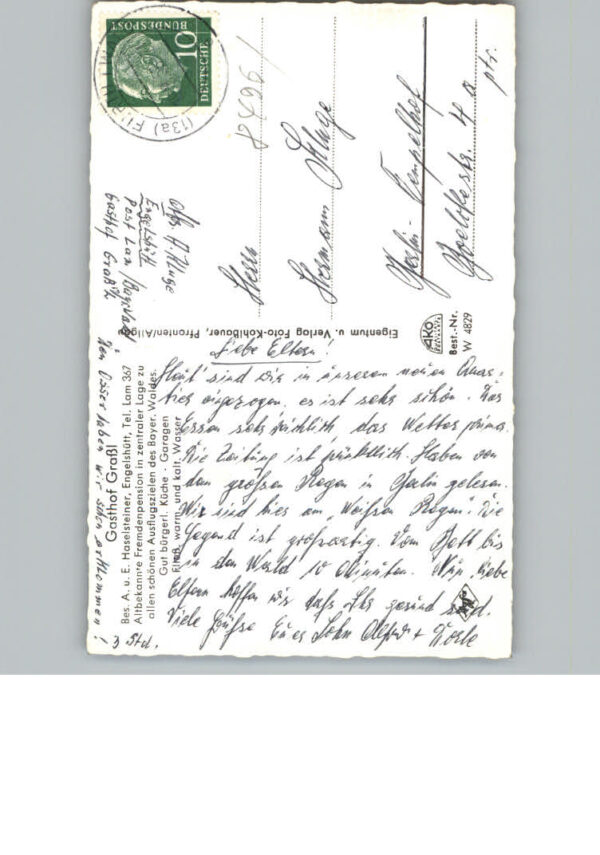 DEUTSCHE
BUNDESPOST
10
(13a) FÜRTH
Abs. A. Kluge
Engelshütt
Post Lam / Bayr. Wald
Gasthof Graßl
Herrn
Hermann Kluge
Berlin-Tempelhof
4 a
ptr.
Gasthof Graßl
Bes. A. u. E. Haselsteiner, Engelshütt, Tel. Lam 367
Altbekannte Fremdenpension in zentraler Lage zu
allen schönen Ausflugszielen des Bayer. Waldes.
Gut bürgerl. Küche · Garagen
Fließ. warm und kalt. Wasser
Eigentum u. Verlag Foto-Kohlbauer, Pfronten/Allgäu
AKO
Best.-Nr.
W 4829
Liebe Eltern!
Heut' sind wir in unseren neuen Quar-
tier eingezogen, es ist sehr schön. Das
Essen sehr reichlich, das Wetter prima.
Die Zeitung ist pünktlich. Haben von
dem großen Regen in Berlin gelesen.
Wir sind hier am „Weißen Regen". Die
Gegend ist großartig. Vom Bett bis
in den Wald 10 Minuten. Nun, liebe
Eltern hoffen wir daß Ihr gesund seid.
Viele Grüße Euer Sohn +
Den Osser haben wir schon erklommen
! 3 Std.
Agfa